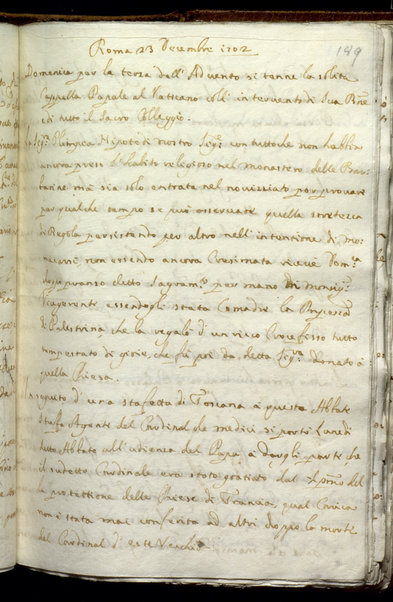 189
Roma 23 Decembre 1702
Domenica per la terza dell'Advento si tenne la solita
Cappella Papale al Vaticano coll'intervento di Sua Bne
e di tutto il Sacro Colleggio.
La Sigra Olimpica Nipote di nostro Sigre con tutto che non habbia
ancora preso l'habito religioso nel monastero delle Bar-
barine mà sia solo entrata nel novizziato per provare
per qualche tempo se può osservare quella strettezza
di Regola persistendo per altro nell'intentione di mo-
nacarsi non essendo ancora Cresimata riceve Domca
doppo pranso detto Sagramto per mano di Monsigr
Vicegerente essendogli stata Comadre la Prencipessa
di Palestrina che la regalò d'un ricco Crocefisso tutto
tempestato di gioie, che fù poi da detta Sigra donato à
quella Chiesa.
In seguito d'una staffetta di Toscana à questo Abbate
Staffa Agente del Cardinal de medici si portò Lunedì
detto Abbate all'udienza del Papa à dargli parte che
il sudetto Cardinale era stato gratiato dal Xpmo del
la protettione delle Chiese di Francia, qual Carica
non è stata mai conferita ad altri doppo la morte
del Cardinal d'este Vecchio